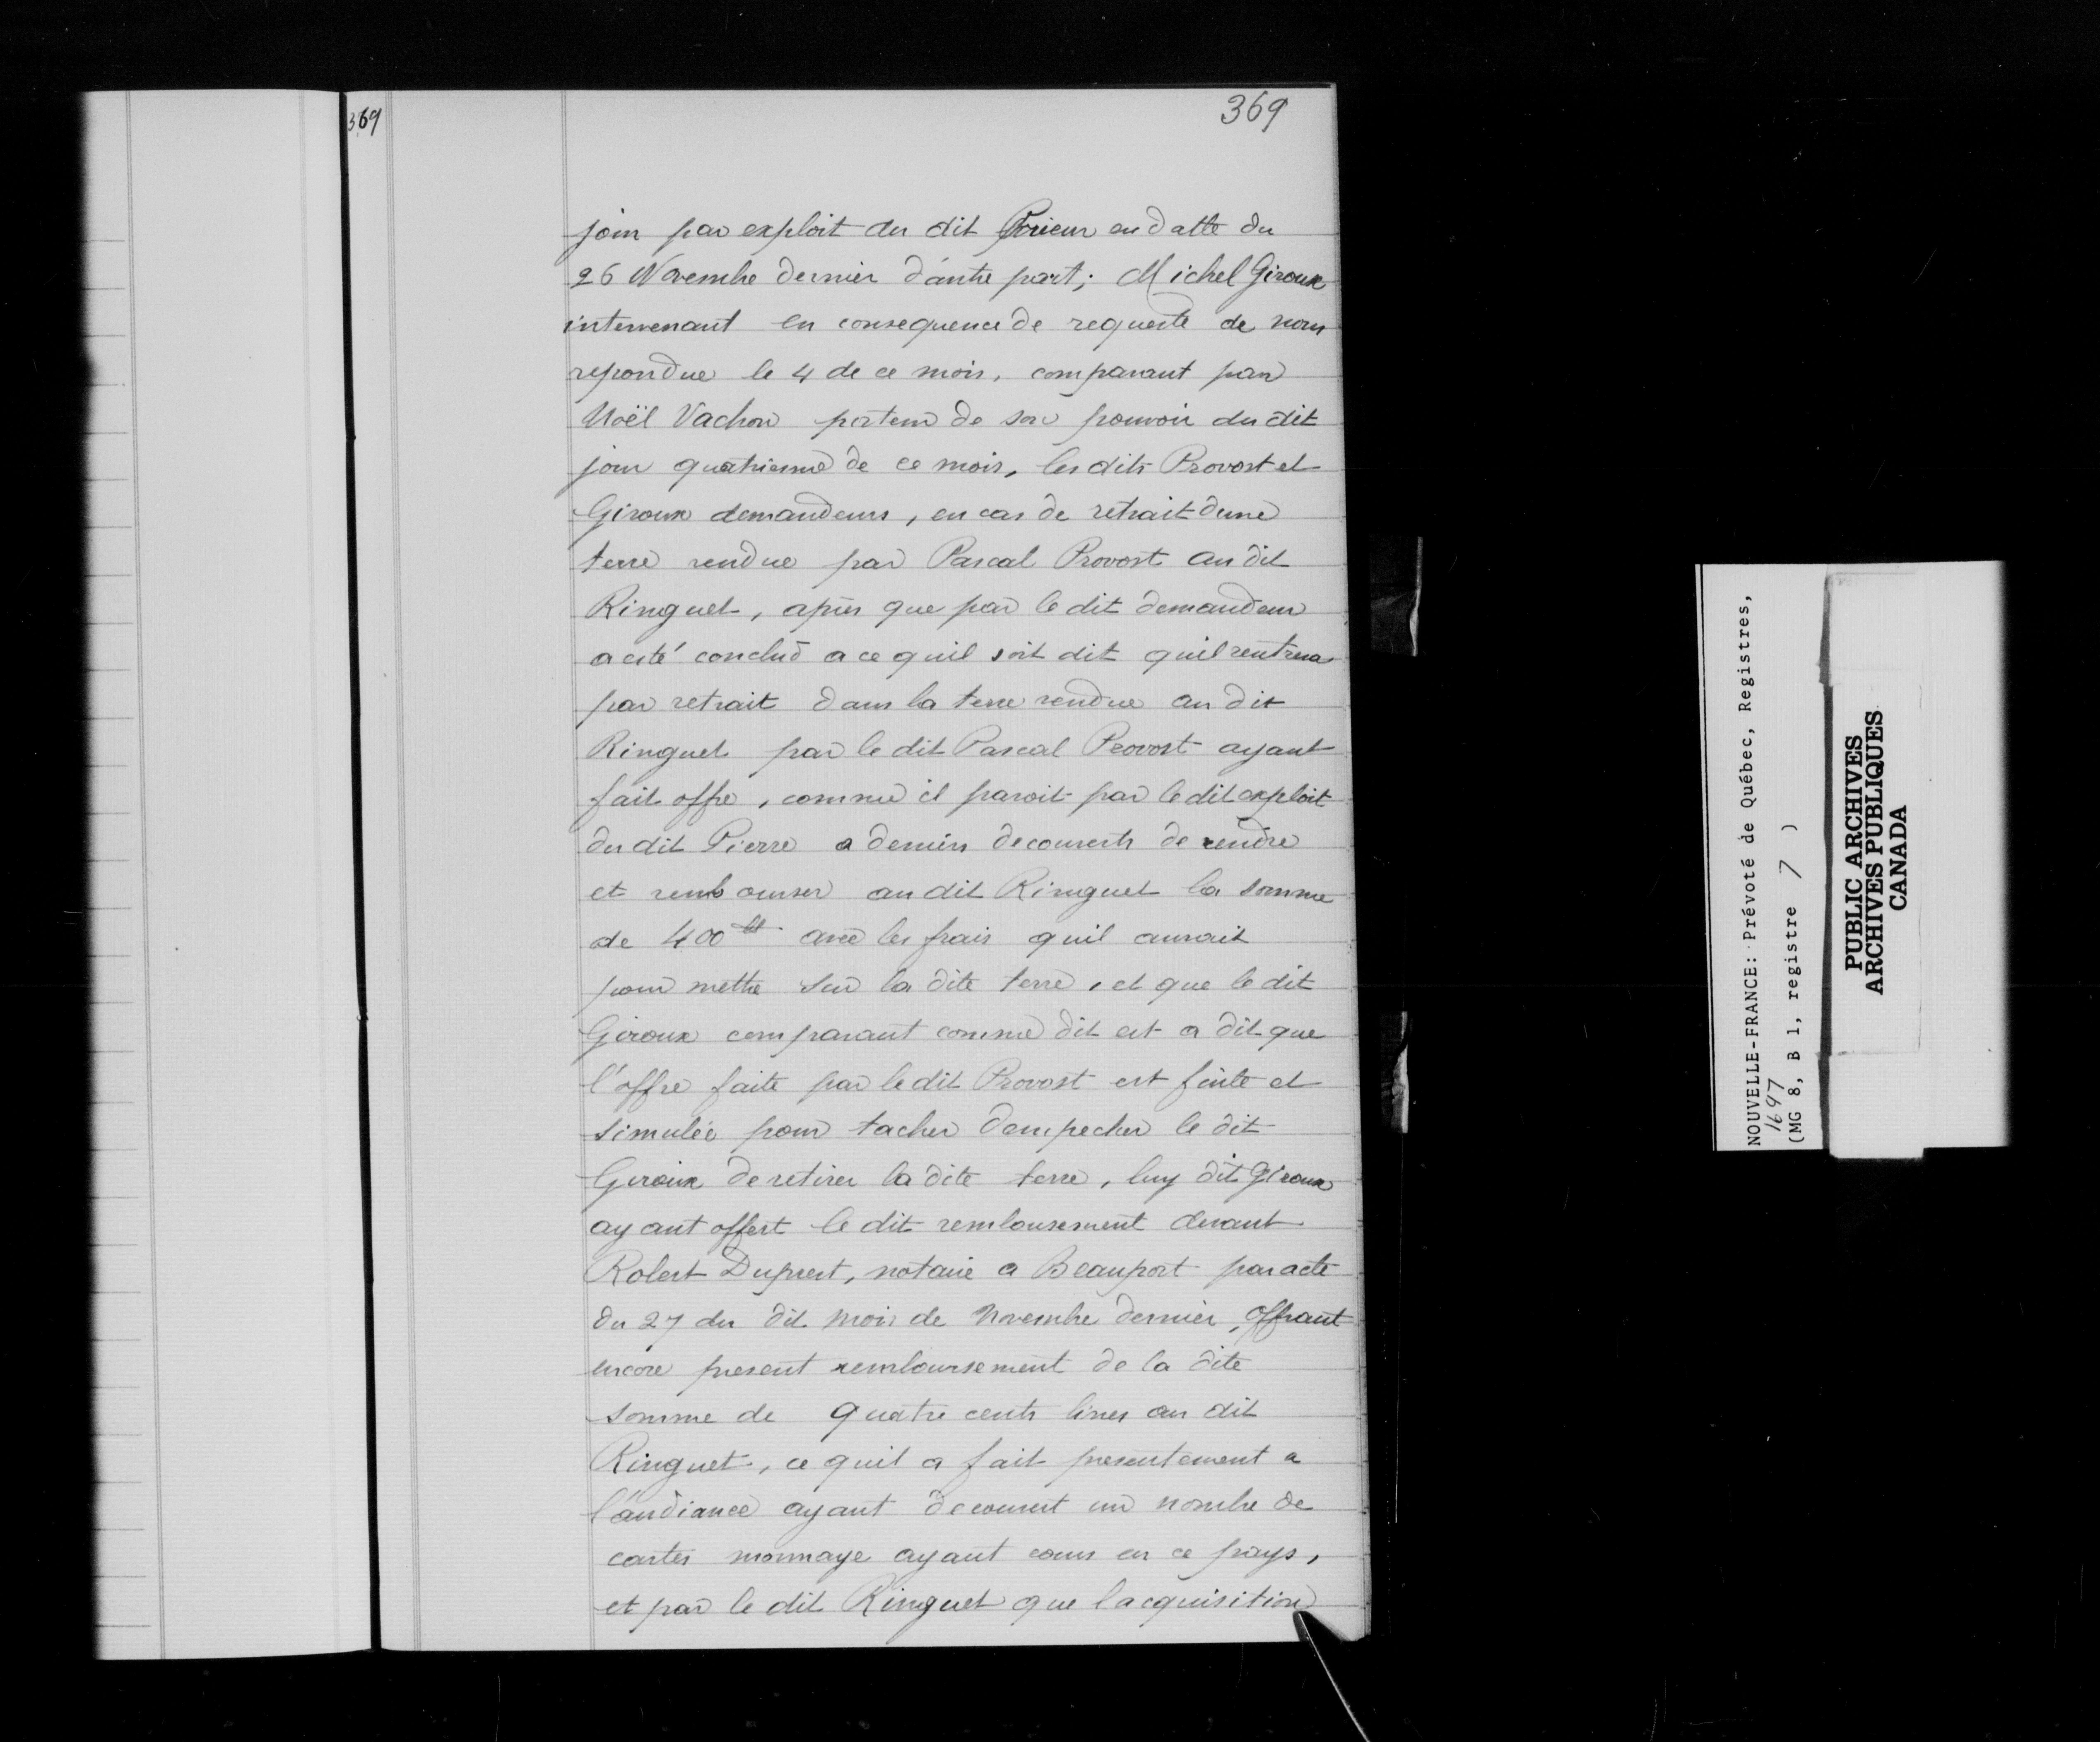 369
369
jour par exploit du dit Prieur en datte du
26 Novembre dernier d'autre part; Michel Giroux
intervenant en consequence de requeste de nous
repondue le 4 de ce mois, comparant par
Noël Vachon porteur de son pouvoir du dit
jour quatriesme de ce mois, les dits Provost et
Giroux demandeurs, en cas de retrait dune
terre vendue par Pascal Provost au dit
Ringuet, apres que par le dit demandeur
a esté conclud a ce quil soit dit quil rentrera
par retrait dans la terre vendue au dit
Ringuet par le dit Pascal Provost ayant
fait offre, comme il paroit par le dit exploit
du dit Pierre a deniers decouverts de rendre
et rembourser au dit Ringuet la somme
de 400 lt avec les frais quil auroit
pour mettre sur la dite terre, et que le dit
Giroux comparant comme dit est a dit que
l'offre faite par le dit Provost est feinte et
simulée pour tacher dempecher le dit
Giroux de retirer la dite terre, luy dit Giroux
ayant offert le dit remboursement devant
Robert Duprest, notaire a Beauport par acte
du 27 du dit mois de Novembre dernier, offrant
encore present remboursement de la dite
somme de quatre cents livres au dit
Ringuet, ce quil a fait presentement a
l'audiance ayant decouvert un nombre de
cartes monnaye ayant cours en ce pays,
et par le dit Ringuet que lacquisition
NOUVELLE-FRANCE: Prévoté de Québec, Registres,
1697
(MG 8, B 1, registre 7 )
PUBLIC ARCHIVES
ARCHIVES PUBLIQUES
CANADA